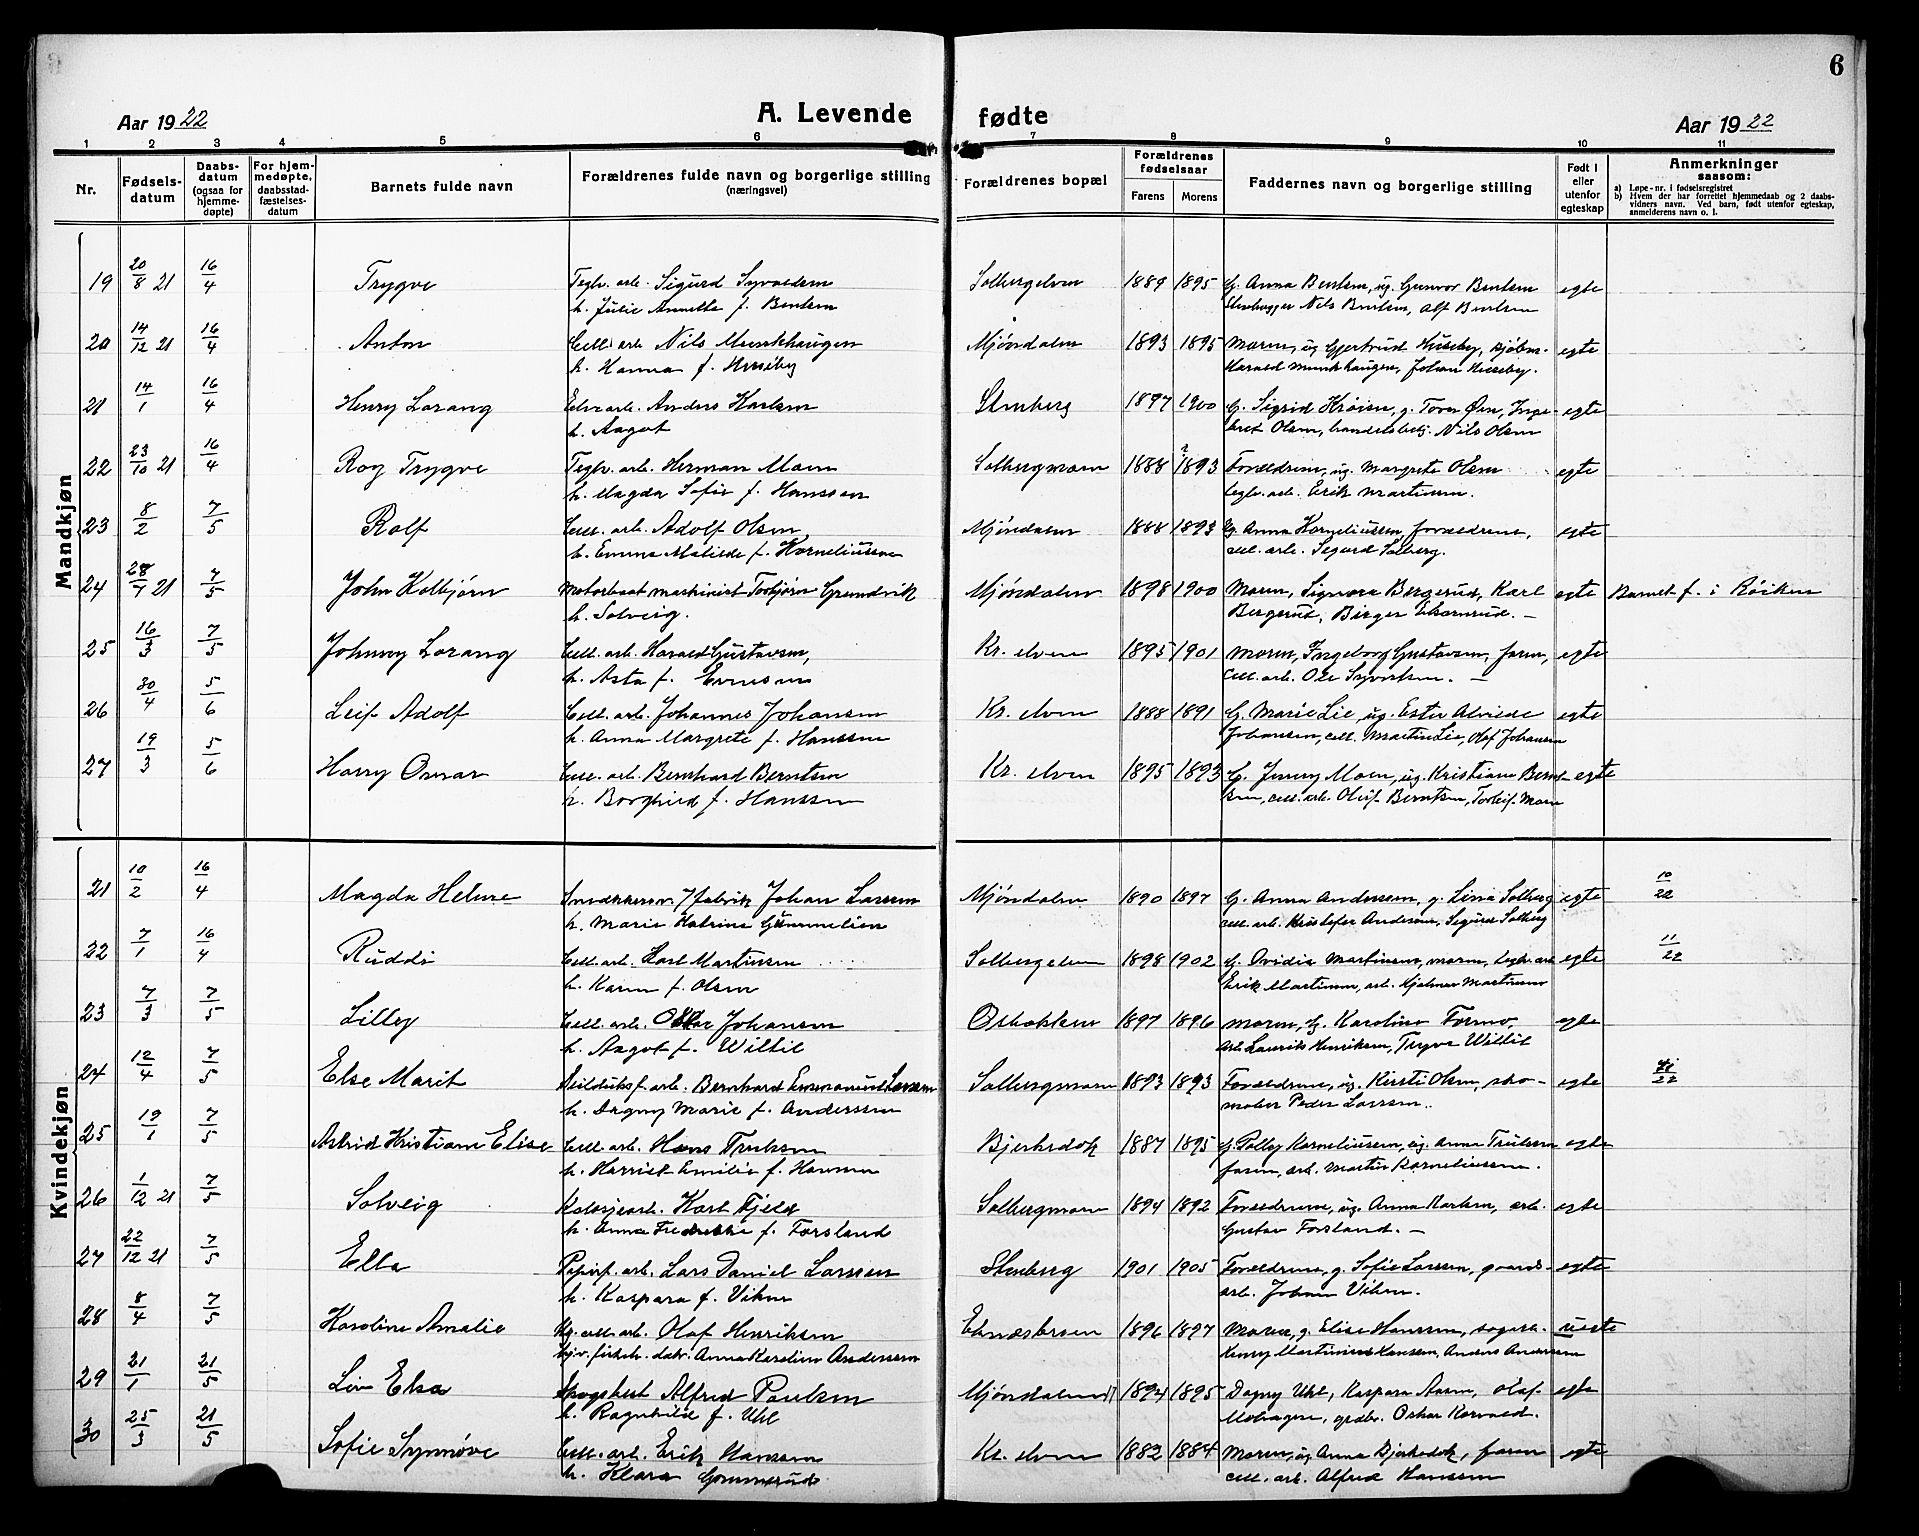 6
Aar 1922
A. Levende fødte
Aar 1922
1 2 3 4 5 6 7 8 9 10 11
Nr.
Fødsels-datum
Daabs-datum (ogsaa for hjemme-døpte)
For hjem-medøpte, daabsstad-fæstelses-datum
Barnets fulde navn
Forældrenes fulde navn og borgerlige stilling (næringsvei)
Forældrenes bopæl
Forældrenes fødselsaar
Farens Morens
Faddernes navn og borgerlige stilling
Født i eller utenfor egteskap
Anmerkninger saasom:
a) Løpe-nr. i fødselsregistret
b) Hvem der har forrettet hjemmedaab og 2 daabs-vidners navn. Ved barn, født utenfor egteskap, anmelderens navn o. l.
Mandkjøn
19 20/8 21 16/4 Trygve Teglv. arb. Sigurd Syvertsen Solbergelven 1889 1895 G. Anna Bentsen, ug. Gunvor Bentsen egte
h. Julie Annette f. Bentsen Stenhugger Nils Bentsen, Alf Bentsen
20 14/12 21 16/4 Anton Cell. arb. Nils Munkhaugen Mjøndalen 1893 1895 Moren, ug. Gjertrud Huseby, egte
h. Hanna f. Huseby Harald Munkhaugen, Johan Huseby.
21 14/1 16/4 Henry Lorang arb. Anders Karlsen Stenberg 1897 1900 G. Sigrid Krøisen, g. Tora Øen, Inge- egte
h. Aagot bret Olsen, handelsbetj. Nils Olsen
22 23/10 21 16/4 Roy Trygve Teglv. arb. Herman Moen Solbergmoen 1888 1893 Forældrene, ug. Margrete Olsen egte
h. Magda Sofie f. Hanssen teglv. arb. Erik Martinsen.
23 8/2 7/5 Rolf Cell. arb. Adolf Olsen Mjøndalen 1888 1893 G. Anna Korneliussen, forældrene, egte
h. Emma Matilde f. Korneliussen cell. arb. Sigurd Solberg.
24 28/7 21 7/5 John Kolbjørn Motorbaat maskinist Torbjørn Grundvik Mjøndalen 1898 1900 Moren, Signora Bergerud, Karl egte Barnet f. i Røiken
h. Solveig. Bergerud, Birger
25 16/3 7/5 Johnny Lorang Cell. arb. Harald Gustavsen, Kr. elven 1895 1901 Moren, Ingeborg Gustavsen, faren, egte
h. Asta f. Evensen Cell. arb. Ole Syvertsen. —
26 30/4 5/6 Leif Adolf Cell. arb. Johannes Johansen Kr. elven 1888 1891 G. Marie Lie, ug. Ester Alvilde egte
h. Anna Margrete f. Hanssen Johansen, cell. Martin Lie, Olaf Johansen
27 19/3 5/6 Harry Osvar Cell. arb. Bernhard Berntsen Kr. elven 1895 1893 G. Jenny Moen, ug. Kristiane Bernt- egte
h. Borghild f. Hanssen sen, cell. arb. Oluf Berntsen, Torleif Moen
Kvindekjøn
21 10/2 16/4 Magda Helene Johan Larsen Mjøndalen 1890 1897 G. Anna Anderssen, g. Lina Solberg egte 10/22
h. Marie Katrine Gummelien cell. arb. Kristofer Andersen, Sigurd Solberg
22 7/1 16/4 Ruddi Cell. arb. Karl Martinsen Solbergelven 1898 1902 G. Ovidia Martinsen, moren, teglv. arb. egte 11/22
h. Karen f. Olsen Erik Martinsen, arb. Hjalmar Martinsen
23 7/3 7/5 Lilly Cell. arb. Oskar Johansen Osbakken 1897 1896 Moren, G. Karoline Formo, egte
h. Aagot f. Wiltil arb. Laurits Henriksen, Trygve Wiltil
24 12/4 7/5 Else Marit arb. Bernhard Emmanuel Larssen Solbergmoen 1893 1893 Forældrene, ug. Kirsti Olsen, sko- egte 41/22
h. Dagny Marie f. Anderssen maker Peder Larssen.
25 19/1 7/5 Astrid Kristiane Elise Cell. arb. Hans Trulssen Bjerkedok 1887 1895 G. Polly Korneliussen, ug. Anna Trulssen egte
h. Harriet Emilie f. Hansen faren, arb. Martin Korneliussen.
26 1/12 21 7/5 Solveig Kolosjearb. Karl Fjeld Solbergmoen 1894 1892 Forældrene, ug. Anna Karlsen, arb. egte
h. Anna Fredrikke f. Forsland Gustav Forsland. —
27 22/12 21 7/5 Ella Papirf. arb. Lars Daniel Larssen Stenberg 1901 1905 Forældrene, g. Sofie Larssen, gaards- egte
h. Kaspara f. Viken arb. Johan Viken.
28 8/4 7/5 Karoline Amalie Ug. cell. arb. Olaf Henriksen 1896 1897 Moren, g. Elise Hanssen, uegte
datr. Anna Karoline Anderssen Henry Martinius Hansen, Anders Anderssen
29 21/1 21/5 Liv Elsa Skogsbest. Alfred Paulsen Mjøndalen 1894 1895 Dagny Uhl, Kaspara Aasen, Olaf egte
h. Ragnhild f. Uhl Mohagen, grdbr. Oskar Korvald.
30 25/3 21/5 Sofie Synnøve Cell. arb. Erik Hanssen Kr. elven 1882 1884 Moren, ug. Anna Bjerkedok, faren egte
h. Klara Gommerud cell. arb. Alfred Hanssen